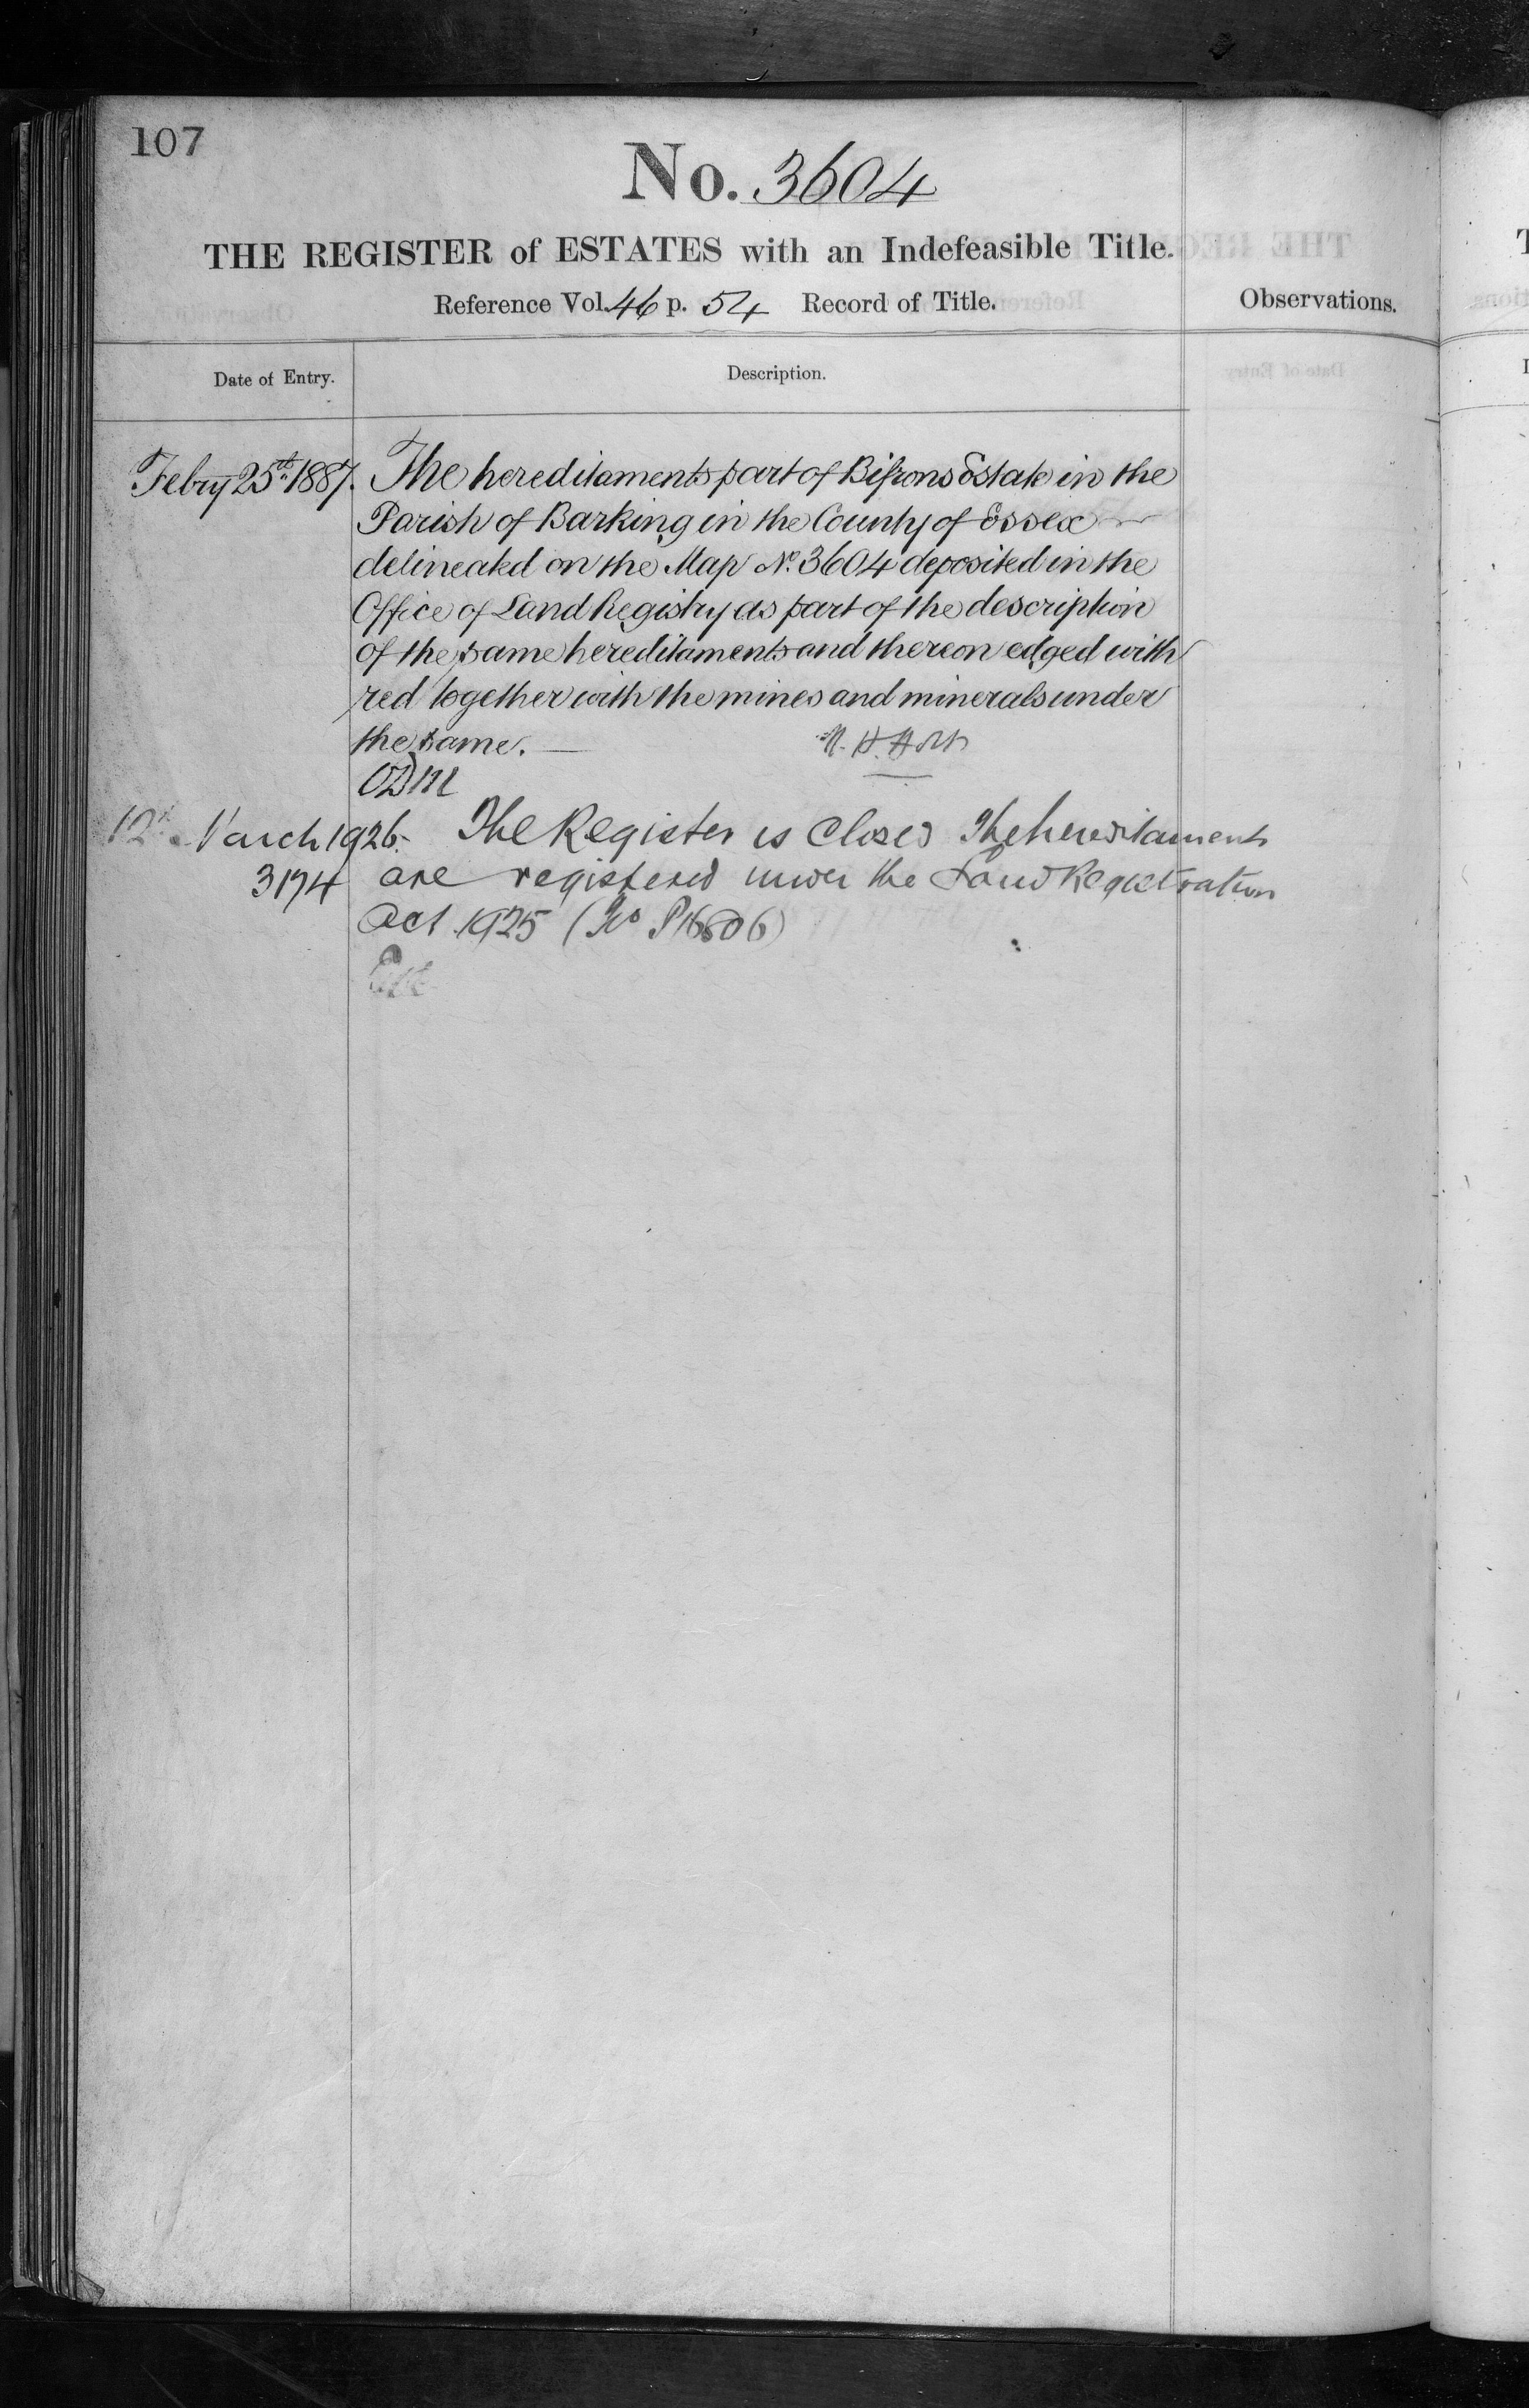 107
No. 3604
THE REGISTER of ESTATES with an Indefeasible Title.
Reference Vol. 46 p. 54 Record of Title.
Observations.
Date of Entry.
Description.
Febry 25th 1887. The hereditaments part of Bifrons Estate in the
Parish of Barking in the County of Essex
delineated on the Map No. 3604 deposited in the
Office of Land Registry as part of the description
of the same hereditaments and thereon edged with
red together with the mines and minerals under
the same. — H. Holt
12th March 1926. The Register is closed The hereditaments
3174 are registered under the Land Registration
Act 1925 (No P16806)